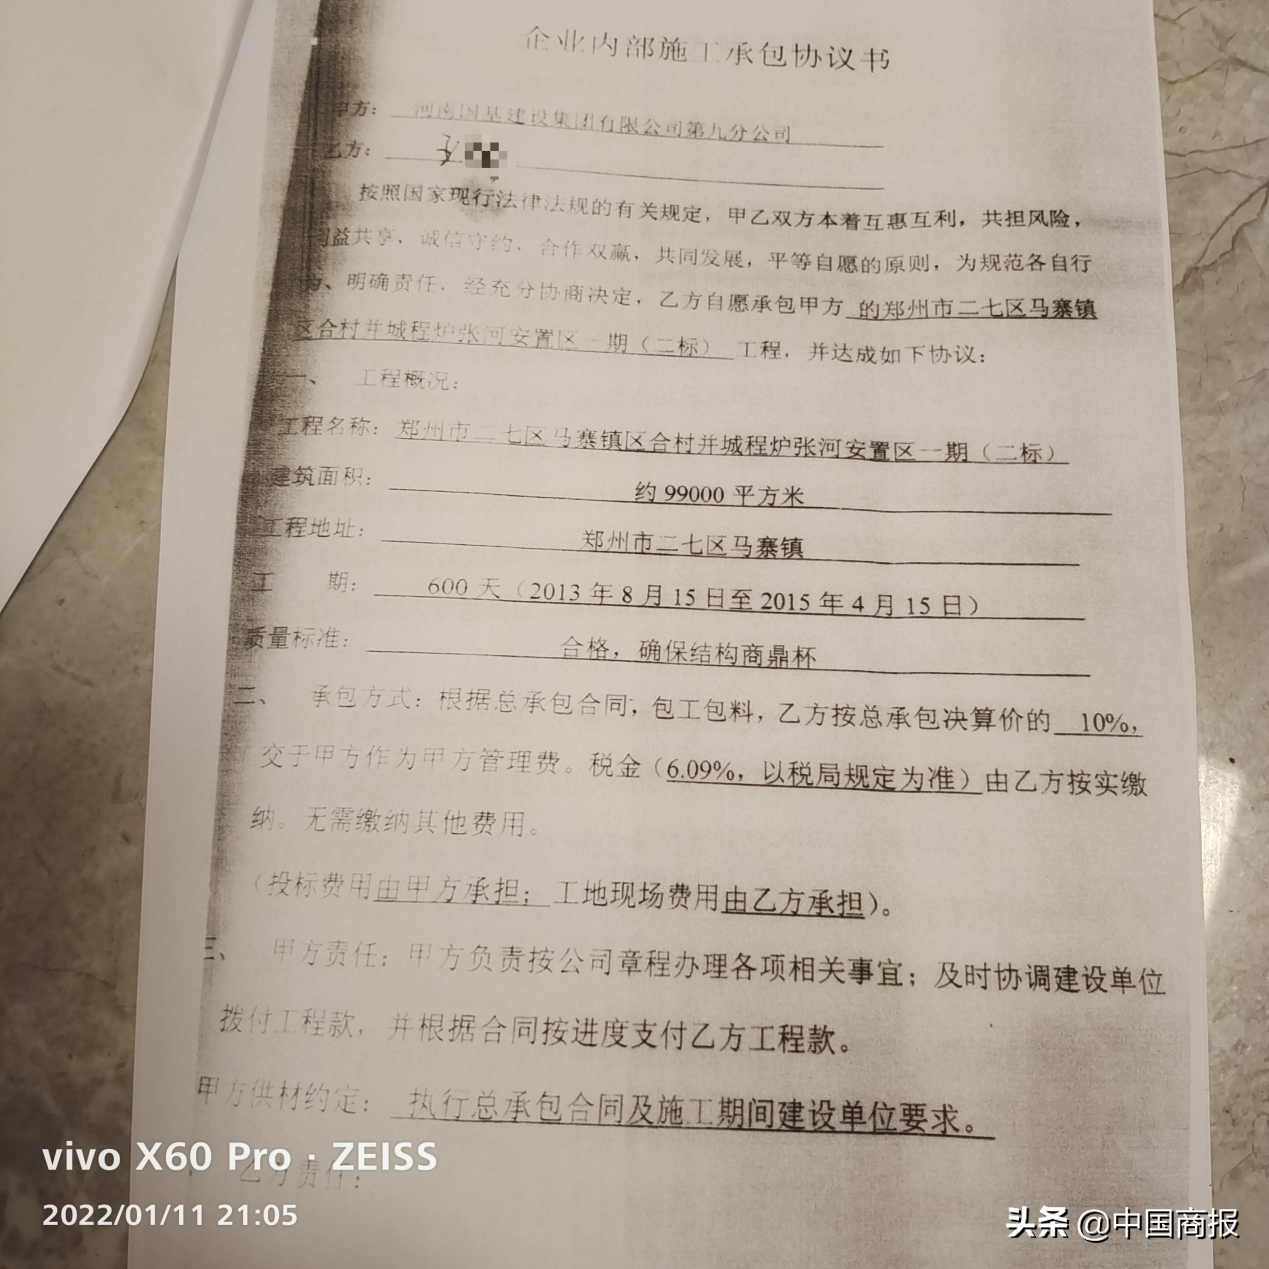 企业内部施工承包协议书
甲方：河南国基建设集团有限公司第九分公司
乙方：
按照国家现行法律法规的有关规定，甲乙双方本着互惠互利，共担风险，
利益共享，诚信守约，合作双赢，共同发展，平等自愿的原则，为规范各自行
为、明确责任，经充分协商决定，乙方自愿承包甲方 的郑州市二七区马寨镇
区合村并城程炉张河安置区一期（二标） 工程，并达成如下协议：
一、 工程概况：
工程名称：郑州市二七区马寨镇区合村并城程炉张河安置区一期（二标）
建筑面积： 约 99000 平方米
工程地址： 郑州市二七区马寨镇
工 期： 600 天（2013 年 8 月 15 日至 2015 年 4 月 15 日）
质量标准： 合格，确保结构商鼎杯
二、 承包方式：根据总承包合同，包工包料，乙方按总承包决算价的 10%，
交于甲方作为甲方管理费。税金（6.09%，以税局规定为准）由乙方按实缴
纳。无需缴纳其他费用。
（投标费用由甲方承担；工地现场费用由乙方承担）。
三、 甲方责任：甲方负责按公司章程办理各项相关事宜；及时协调建设单位
拨付工程款，并根据合同按进度支付乙方工程款。
甲方供材约定： 执行总承包合同及施工期间建设单位要求。
乙方责任：
vivo X60 Pro · ZEISS
2022/01/11 21:05
头条 @中国商报